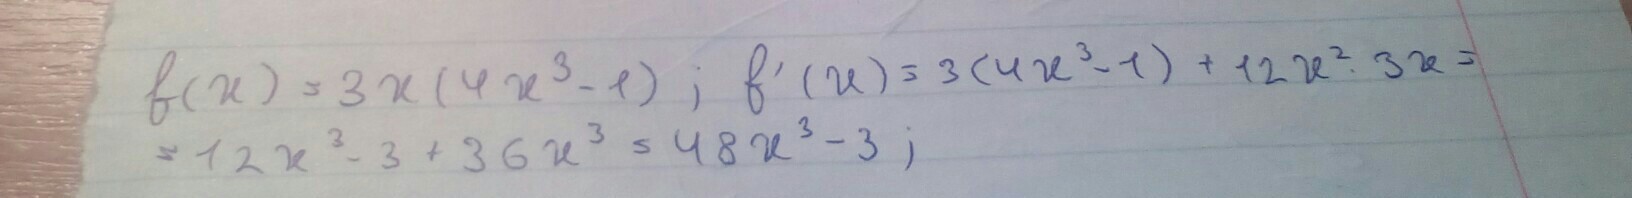 f(x) = 3x(4x³-1); f'(x) = 3(4x³-1) + 12x²·3x =
= 12x³-3+36x³ = 48x³-3;